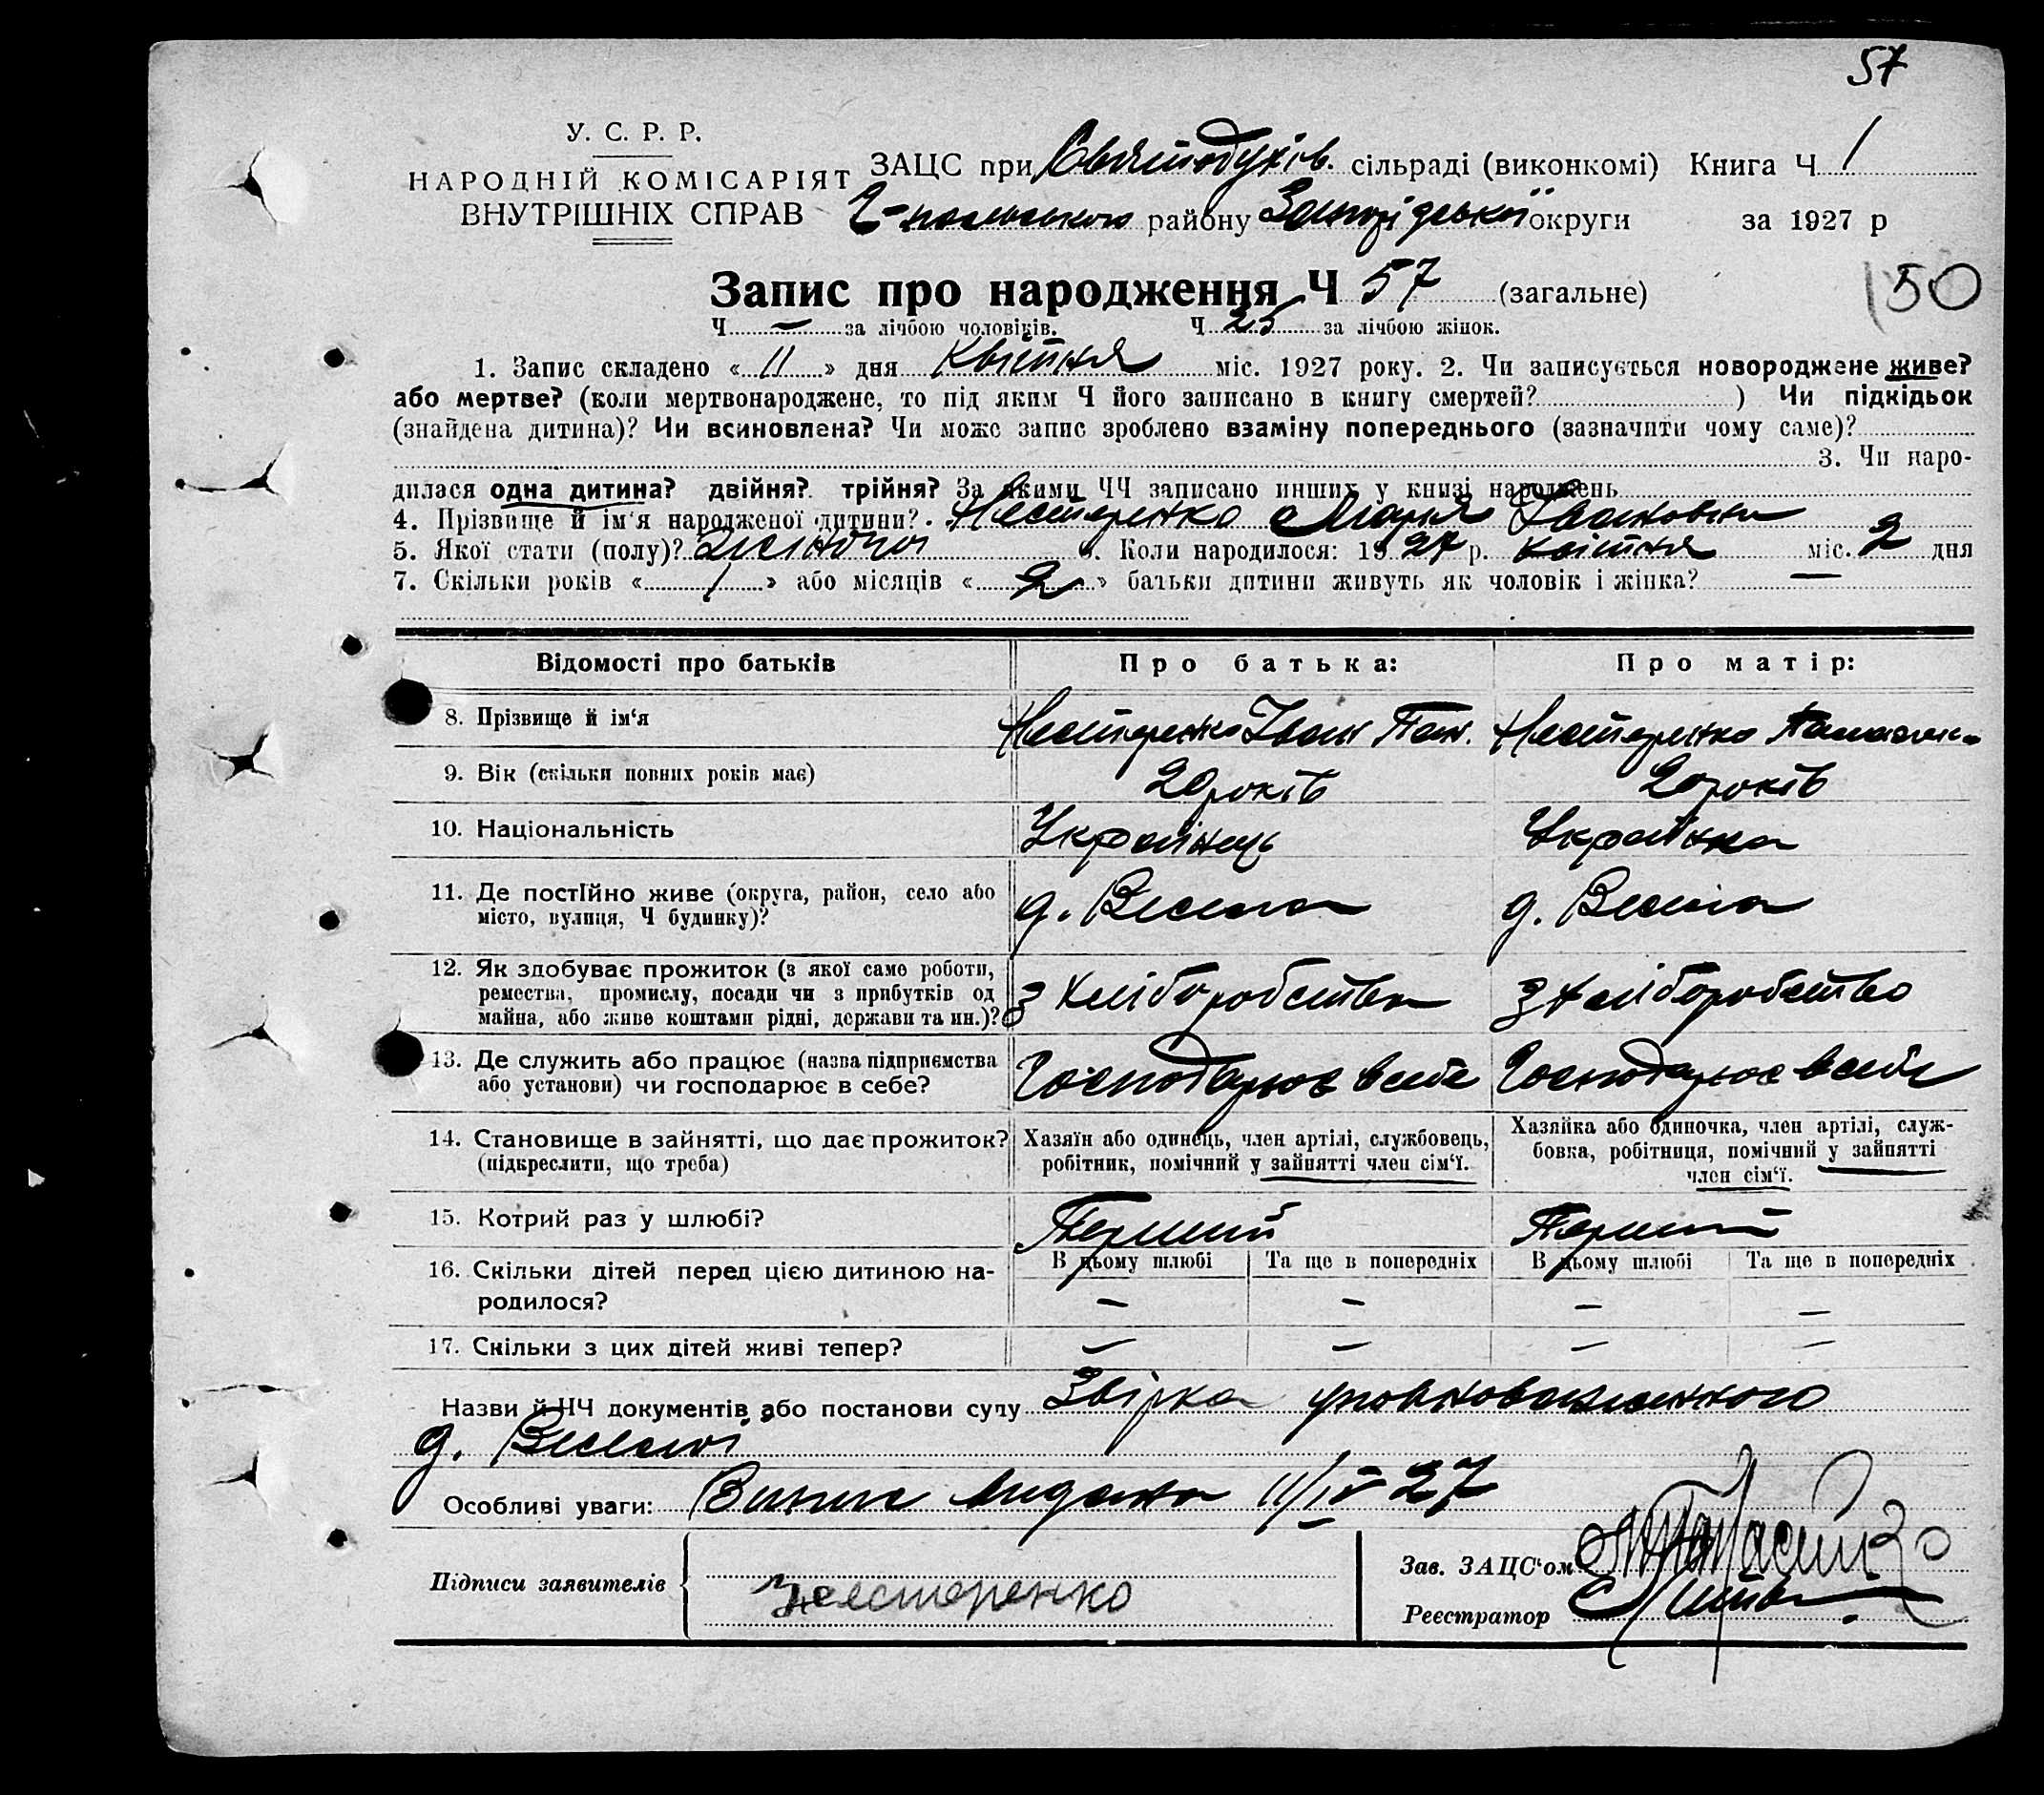 57
У. С. Р. Р.
НАРОДНІЙ КОМІСАРІЯТ
ВНУТРІШНІХ СПРАВ
ЗАЦС при Святодухів. сільраді (виконкомі) Книга Ч 1
району Запорізької округи за 1927 р
Запис про народження Ч 57 (загальне)
150
Ч — за лічбою чоловіків. Ч 25 за лічбою жінок.
1. Запис складено « 11 » дня Квітня міс. 1927 року. 2. Чи записується новороджене живе?
або мертве? (коли мертвонароджене, то під яким Ч його записано в книгу смертей? ) Чи підкідьок
(знайдена дитина)? Чи всиновлена? Чи може запис зроблено взаміну попереднього (зазначити чому саме)?
3. Чи наро-
дилася одна дитина? двійня? трійня? За якими ЧЧ записано инших у книзі народжень
4. Прізвище й ім'я народженої дитини? Нестеренко Марія Івановна
5. Якої стати (полу)? Жіночої 6. Коли народилося: 1927 р. квітня міс. 2 дня
7. Скільки років « 1 » або місяців « 2 » батьки дитини живуть як чоловік і жінка? —
Відомості про батьків
Про батька:
Про матір:
8. Прізвище й ім'я
Нестеренко Іван Пан.
Нестеренко
9. Вік (скільки повних років має)
20 років
20 років
10. Національність
Українець
Українка
11. Де постійно живе (округа, район, село або
місто, вулиця, Ч будинку)?
д. Весела
д. Весела
12. Як здобуває прожиток (з якої саме роботи,
ремества, промислу, посади чи з прибутків од
майна, або живе коштами рідні, держави та ин.)?
З хліборобства
З хліборобство
13. Де служить або працює (назва підприємства
або установи) чи господарює в себе?
Господарює в себе
Господарює в себе
14. Становище в зайнятті, що дає прожиток?
(підкреслити, що треба)
Хазяїн або одинець, член артілі, службовець,
робітник, помічний у зайнятті член сім'ї.
Хазяйка або одиночка, член артілі, служ-
бовка, робітниця, помічний у зайнятті
член сім'ї.
15. Котрий раз у шлюбі?
Перший
Перший
16. Скільки дітей перед цією дитиною на-
родилося?
В цьому шлюбі
Та ще в попередніх
В цьому шлюбі
Та ще в попередніх
— — — —
17. Скільки з цих дітей живі тепер?
— — — —
Назви й ЧЧ документів або постанови суду Звірка уповноваженного
д. Веселої
Особливі уваги: Випис видана 11/IV 27
Підписи заявителів
Нестеренко
Зав. ЗАЦС'ом
Реєстратор